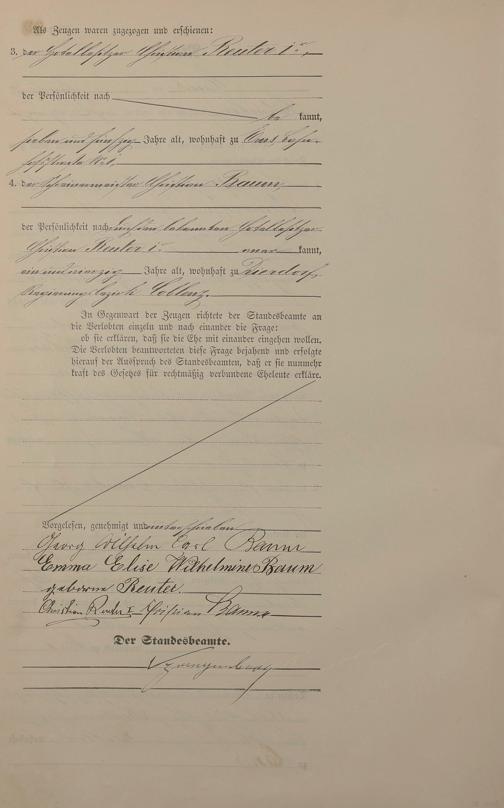 Als Zeugen waren zugezogen und erschienen:
3. der Hotelbesitzer Christian Reuter Ir
der Persönlichkeit nach
be kannt,
sieben und fünfzig Jahre alt, wohnhaft zu Ems,
4. der Schreinermeister Christian Baum
der Persönlichkeit nach durch den bekannten Hotelbesitzer
Christian Reuter Ir. aner kannt,
ein und vierzig Jahre alt, wohnhaft zu Dierdorf
Regierungsbezirk Coblenz.
In Gegenwart der Zeugen richtete der Standesbeamte an
die Verlobten einzeln und nach einander die Frage:
ob sie erklären, daß sie die Ehe mit einander eingehen wollen.
Die Verlobten beantworteten diese Frage bejahend und erfolgte
hierauf der Ausspruch des Standesbeamten, daß er sie nunmehr
kraft des Gesetzes für rechtmäßig verbundene Eheleute erkläre.
Vorgelesen, genehmigt und unterschrieben
Georg Wilhelm Carl Baum
Emma Elise Wilhelmine Baum
geborne Reuter.
Christian Reuter I Christian Baum
Der Standesbeamte.